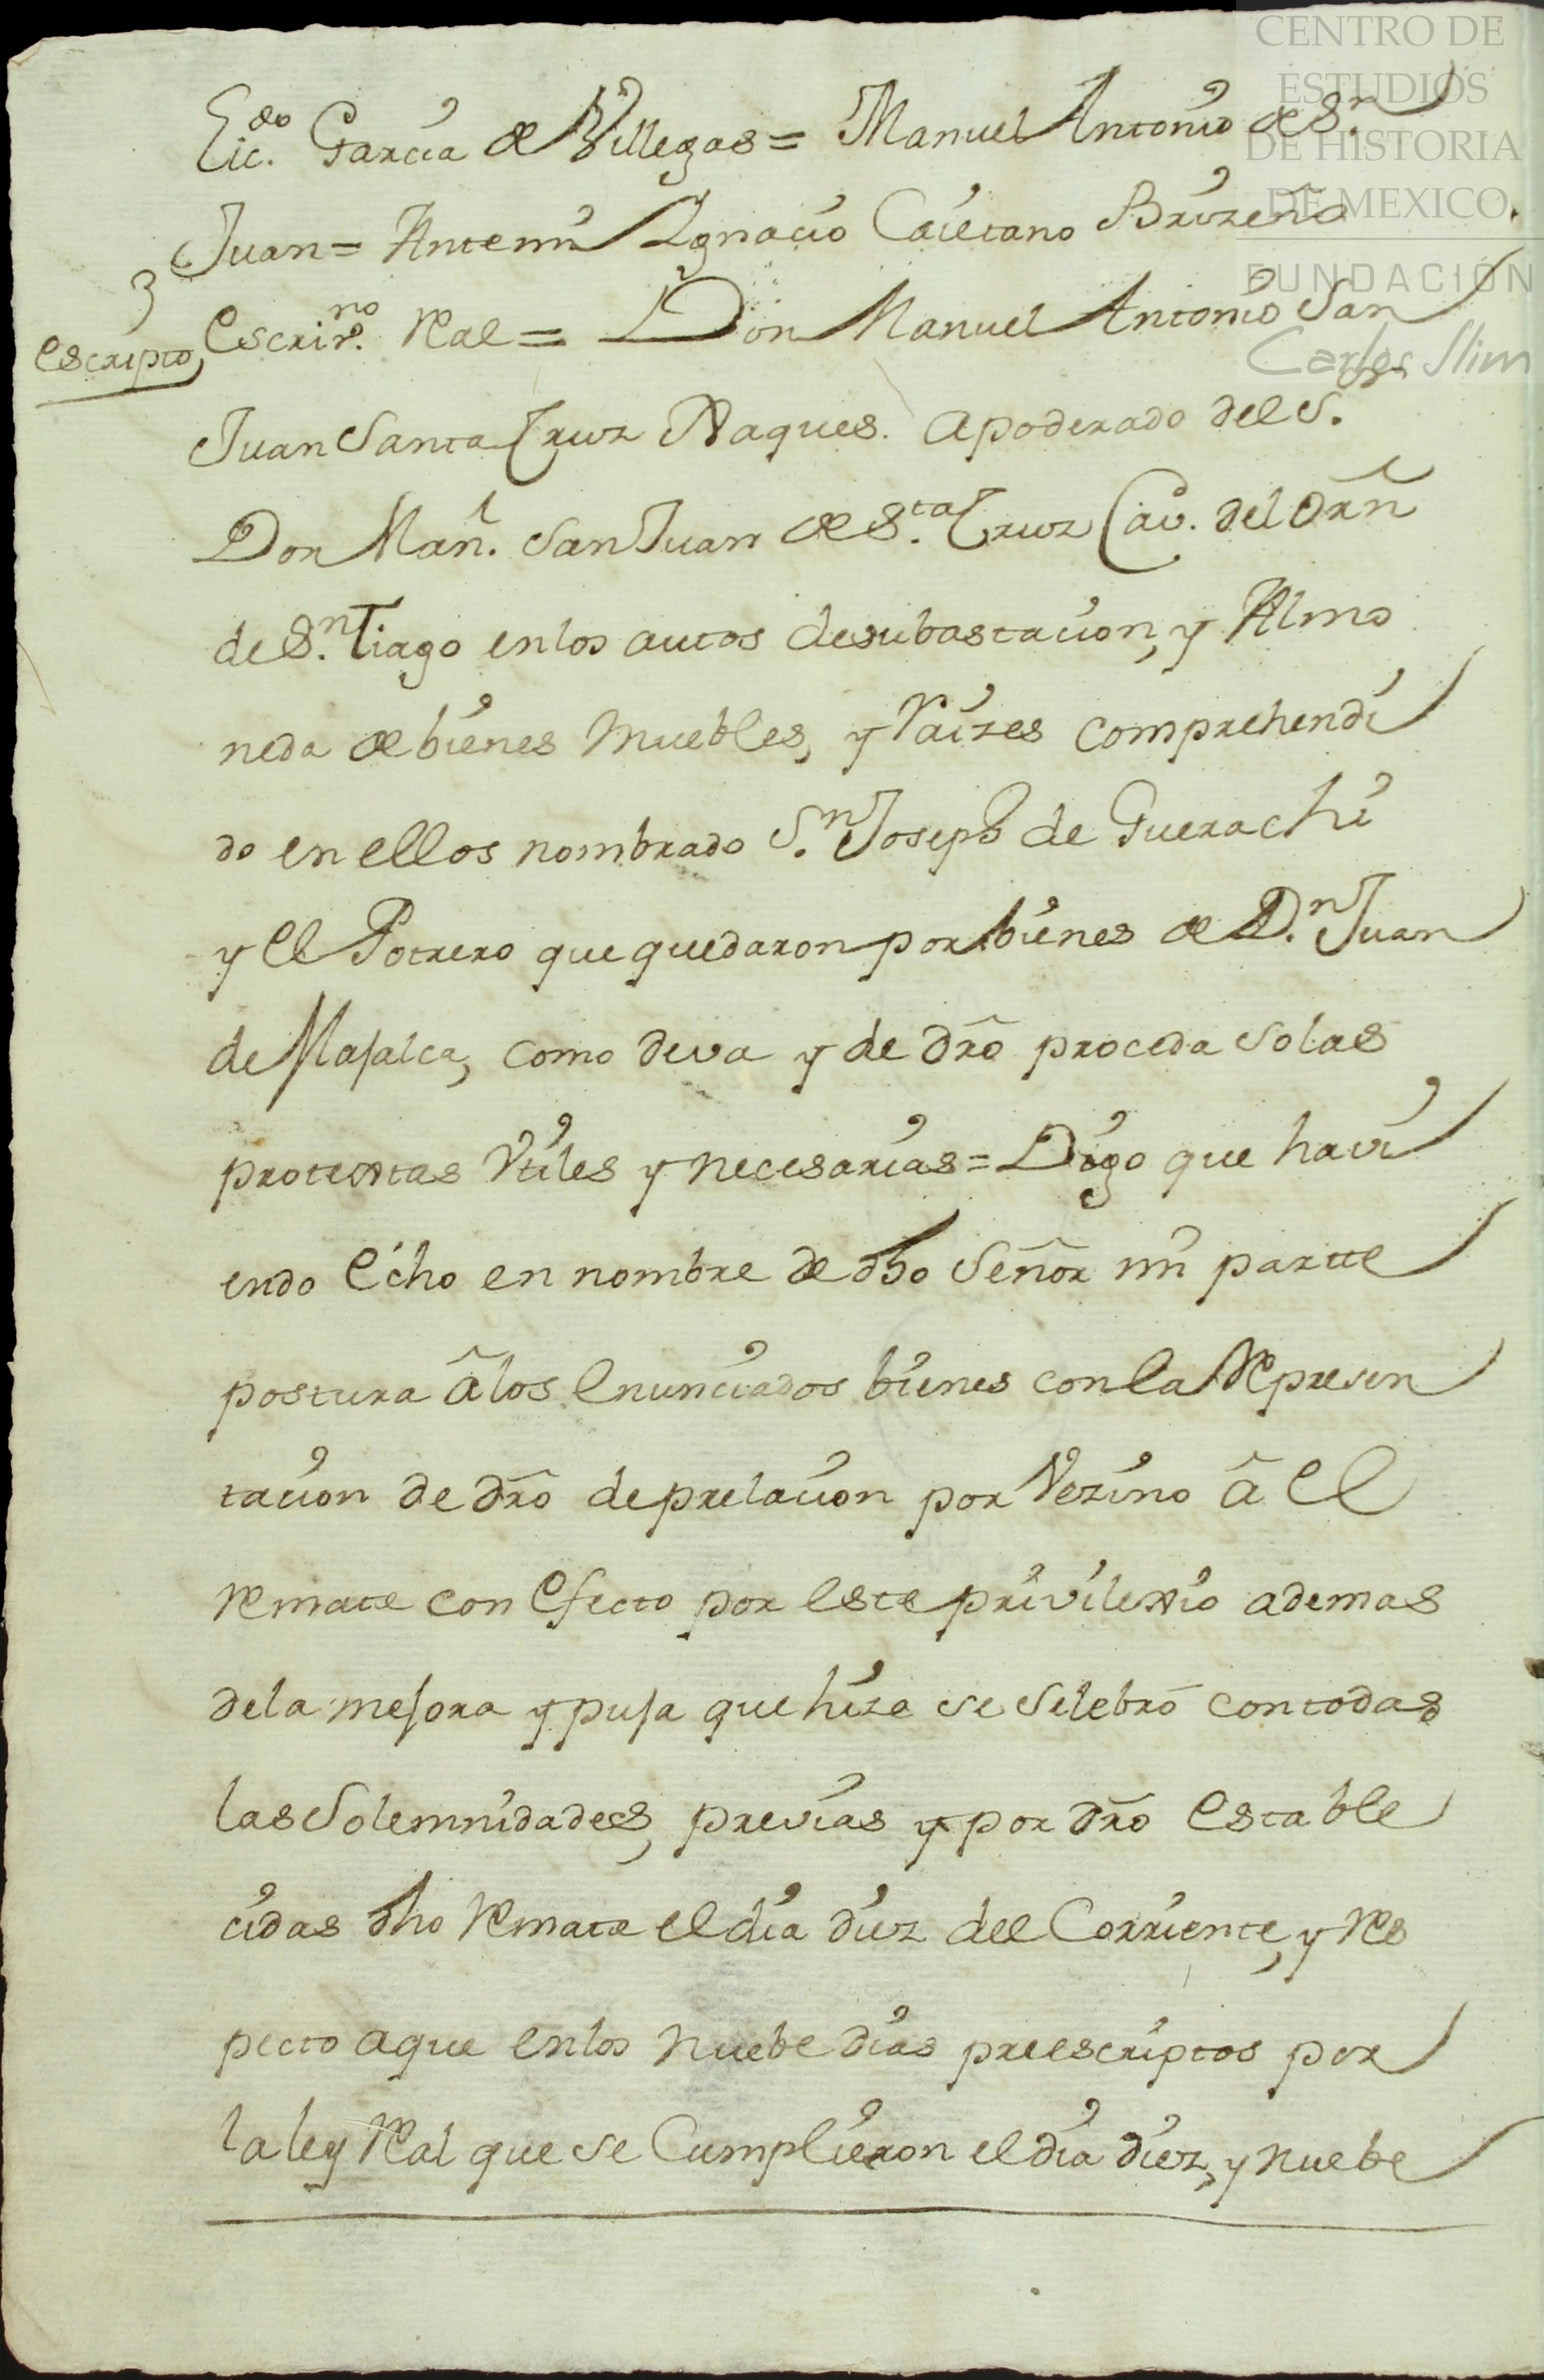 CENTRO DE
ESTUDIOS
DE HISTORIA
DE MEXICO
FUNDACIÓN
Carlos Slim
Lic.do Garcia de Villegas = Manuel Antonio de S.n
Juan = Antemi Ygnacio Caietano Brizeño.
3
escripto
Escriv.no Real = Don Manuel Antonio San
Juan Santa Cruz Xaques. apoderado del S.or
Don Man.l San Juan de S.ta Cruz Cav. del Orñ
de S.n Tiago enlos autos desubastacion, y Almo
neda de bienes Muebles, y Raizes comprehendi
do en ellos nombrado S.n Joseph de Guerachi
y el Potrero que quedaron por bienes de D.n Juan
de Masalca, como deva y de dr̃o proceda solas
protextas Vtiles y necesarias = Digo que havi
endo Echo en nombre de dho Señor mi partte
postura â los enunciados bienes con la Represen
tacion de dr̃o deprelacion por Vezino â el
Remate con efecto por este privilexio ademas
dela mejora y puja que hize se selebró contodas
las Solemnidades, previas y por dr̃o estable
cidas dho Remate el dia diez del Corriente, y Res
pecto aque enlos nuebe dias preescriptos por
la ley Real que se Cumplieron el dia diez, y nuebe